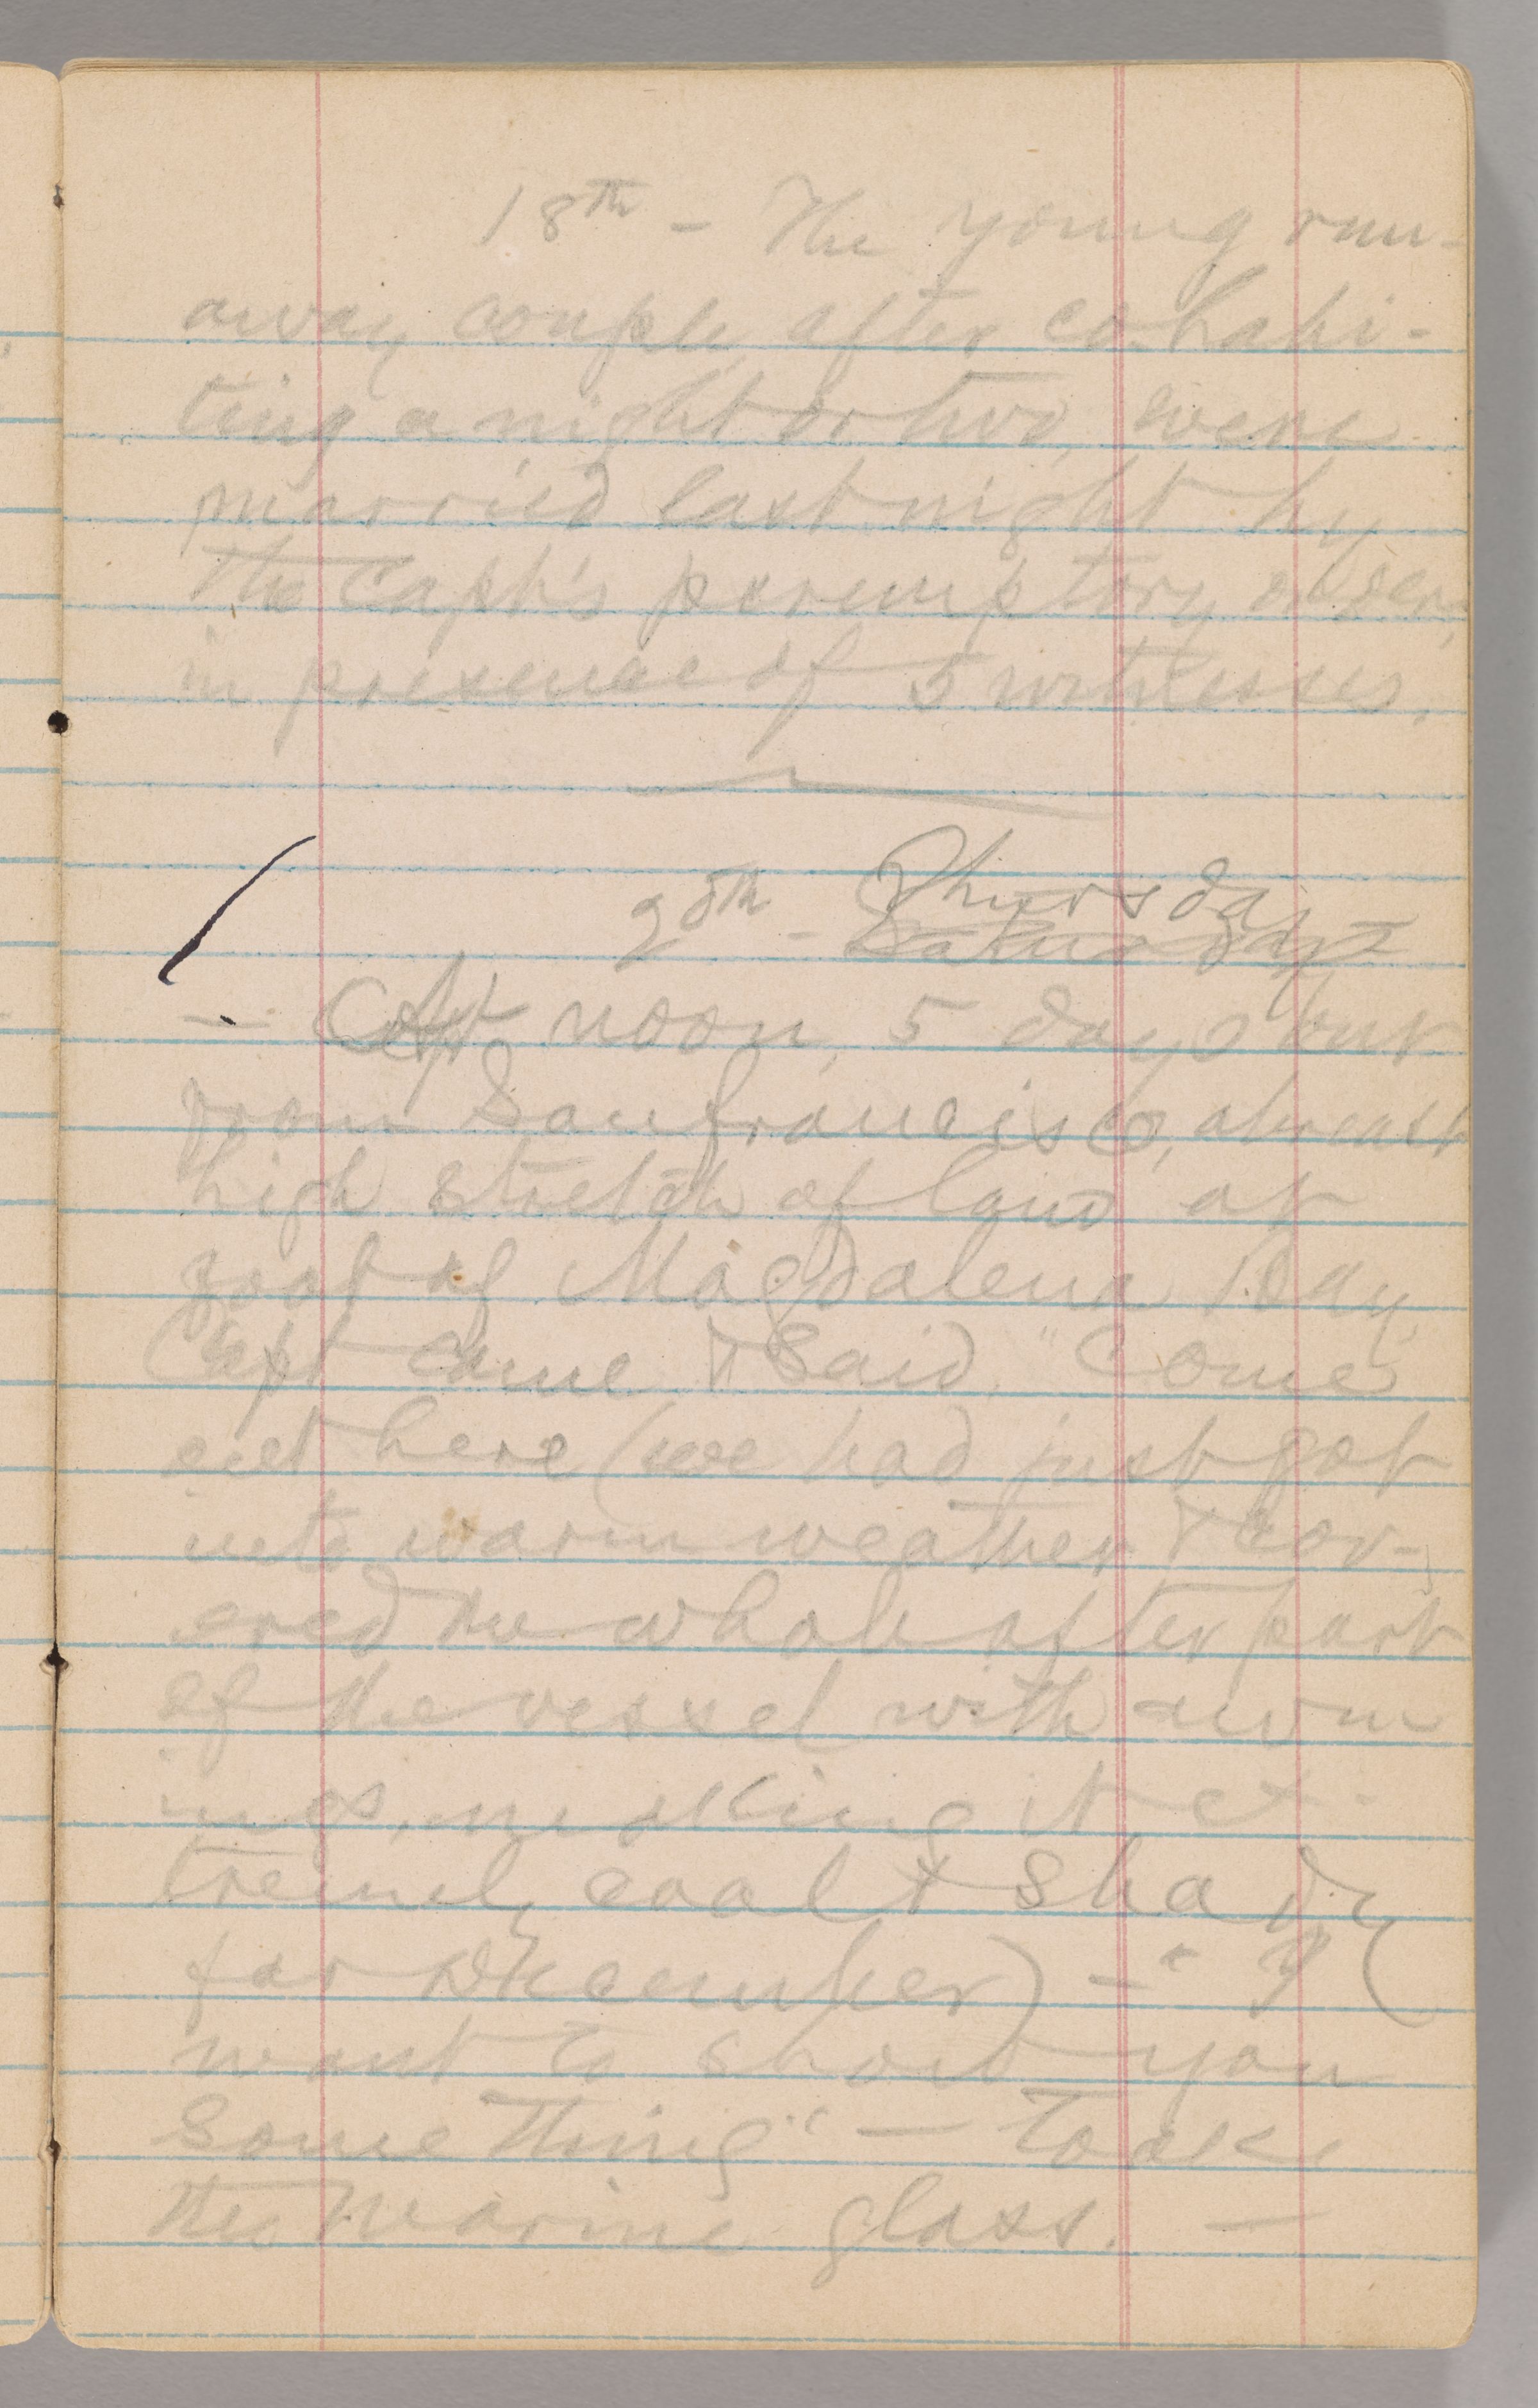 18th – The young run-
away couple, after cohabi-
ting a night or two, were
married last night by
the Capt's peremptory order,
in presence of 5 witnesses.
20th – Thursday
Saturday
— At noon, 5 days out
from San Francisco, abreast
high stretch of land at
foot of Magdalena Bay,
Capt came & said, "Come
out here (we had just got
into warm weather & cov-
ered the whole after part
of the vessel with awn
ings, making it ex-
tremely cool & shady
for December) — "I
want to show you
something" — took
the marine glass. —